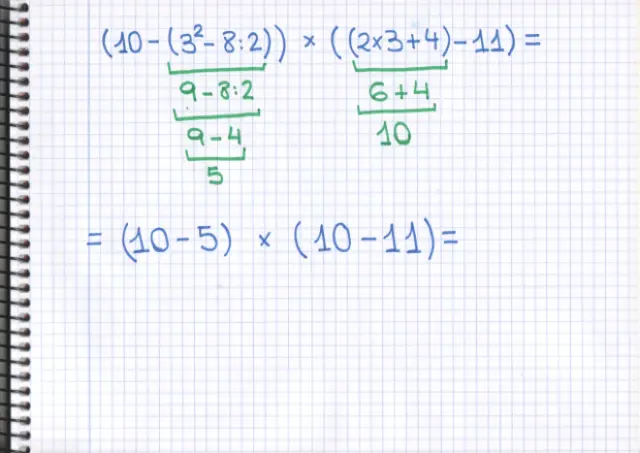 (10-(3²-8:2)) × ((2×3+4)-11)=
9-8:2 6+4
9-4 10
5
= (10-5) × (10-11)=